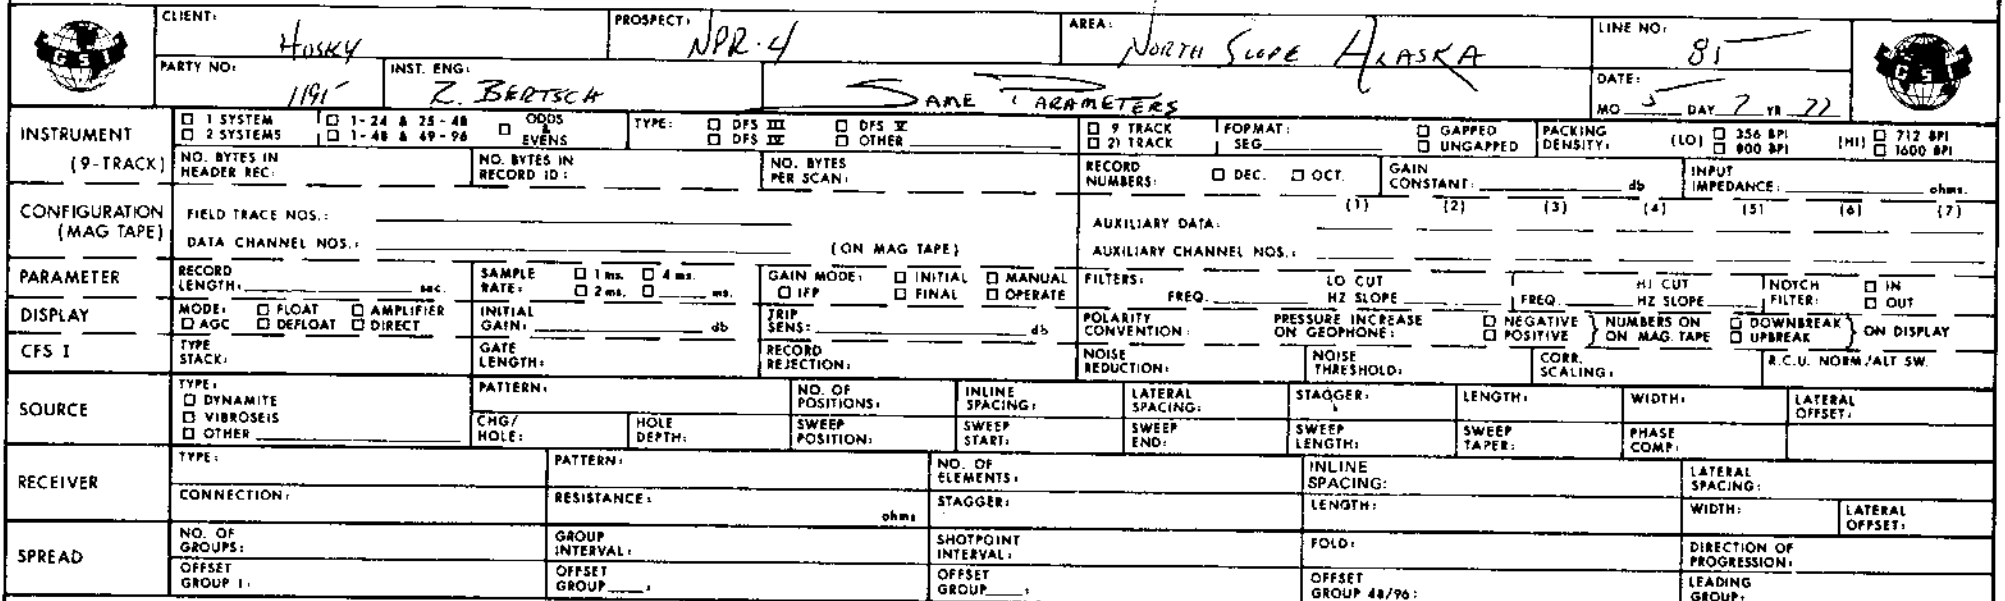 CLIENT: Husky PROSPECT: NPR-4 AREA: North Slope Alaska LINE NO: 85
GSI GSI
PARTY NO: 1195 INST. ENG: Z. Bertsch Same Parameters DATE: MO 5 DAY 7 YR 77
INSTRUMENT (9-TRACK) □ 1 SYSTEM □ 1-24 & 25-48 □ ODDS & EVENS TYPE: □ DFS III □ DFS V □ 9 TRACK FORMAT: □ GAPPED PACKING DENSITY: (LO) □ 356 BPI (HI) □ 712 BPI
□ 2 SYSTEMS □ 1-48 & 49-96 □ DFS IV □ OTHER □ 21 TRACK SEG □ UNGAPPED □ 800 BPI □ 1600 BPI
NO. BYTES IN HEADER REC: NO. BYTES IN RECORD ID: NO. BYTES PER SCAN: RECORD NUMBERS: □ DEC. □ OCT. GAIN CONSTANT: db INPUT IMPEDANCE: ohms.
CONFIGURATION (MAG TAPE) FIELD TRACE NOS.: AUXILIARY DATA: (1) (2) (3) (4) (5) (6) (7)
DATA CHANNEL NOS.: (ON MAG TAPE) AUXILIARY CHANNEL NOS.:
PARAMETER RECORD LENGTH: sec. SAMPLE RATE: □ 1 ms. □ 4 ms. □ 2 ms. □ ms. GAIN MODE: □ INITIAL □ MANUAL □ IFP □ FINAL □ OPERATE FILTERS: LO CUT FREQ. HZ SLOPE HI CUT FREQ. HZ SLOPE NOTCH FILTER: □ IN □ OUT
DISPLAY MODE: □ FLOAT □ AMPLIFIER □ AGC □ DEFLOAT □ DIRECT INITIAL GAIN: db TRIP SENS: db POLARITY CONVENTION: PRESSURE INCREASE ON GEOPHONE: □ NEGATIVE □ POSITIVE } NUMBERS ON MAG. TAPE □ DOWNBREAK □ UPBREAK } ON DISPLAY
CFS I TYPE STACK: GATE LENGTH: RECORD REJECTION: NOISE REDUCTION: NOISE THRESHOLD: CORR. SCALING: R.C.U. NORM/ALT SW.
SOURCE TYPE: □ DYNAMITE □ VIBROSEIS □ OTHER PATTERN: NO. OF POSITIONS: INLINE SPACING: LATERAL SPACING: STAGGER: LENGTH: WIDTH: LATERAL OFFSET:
CHG/HOLE: HOLE DEPTH: SWEEP POSITION: SWEEP START: SWEEP END: SWEEP LENGTH: SWEEP TAPER: PHASE COMP:
RECEIVER TYPE: PATTERN: NO. OF ELEMENTS: INLINE SPACING: LATERAL SPACING:
CONNECTION: RESISTANCE: ohms STAGGER: LENGTH: WIDTH: LATERAL OFFSET:
SPREAD NO. OF GROUPS: GROUP INTERVAL: SHOTPOINT INTERVAL: FOLD: DIRECTION OF PROGRESSION:
OFFSET GROUP 1: OFFSET GROUP : OFFSET GROUP : OFFSET GROUP 48/96: LEADING GROUP: